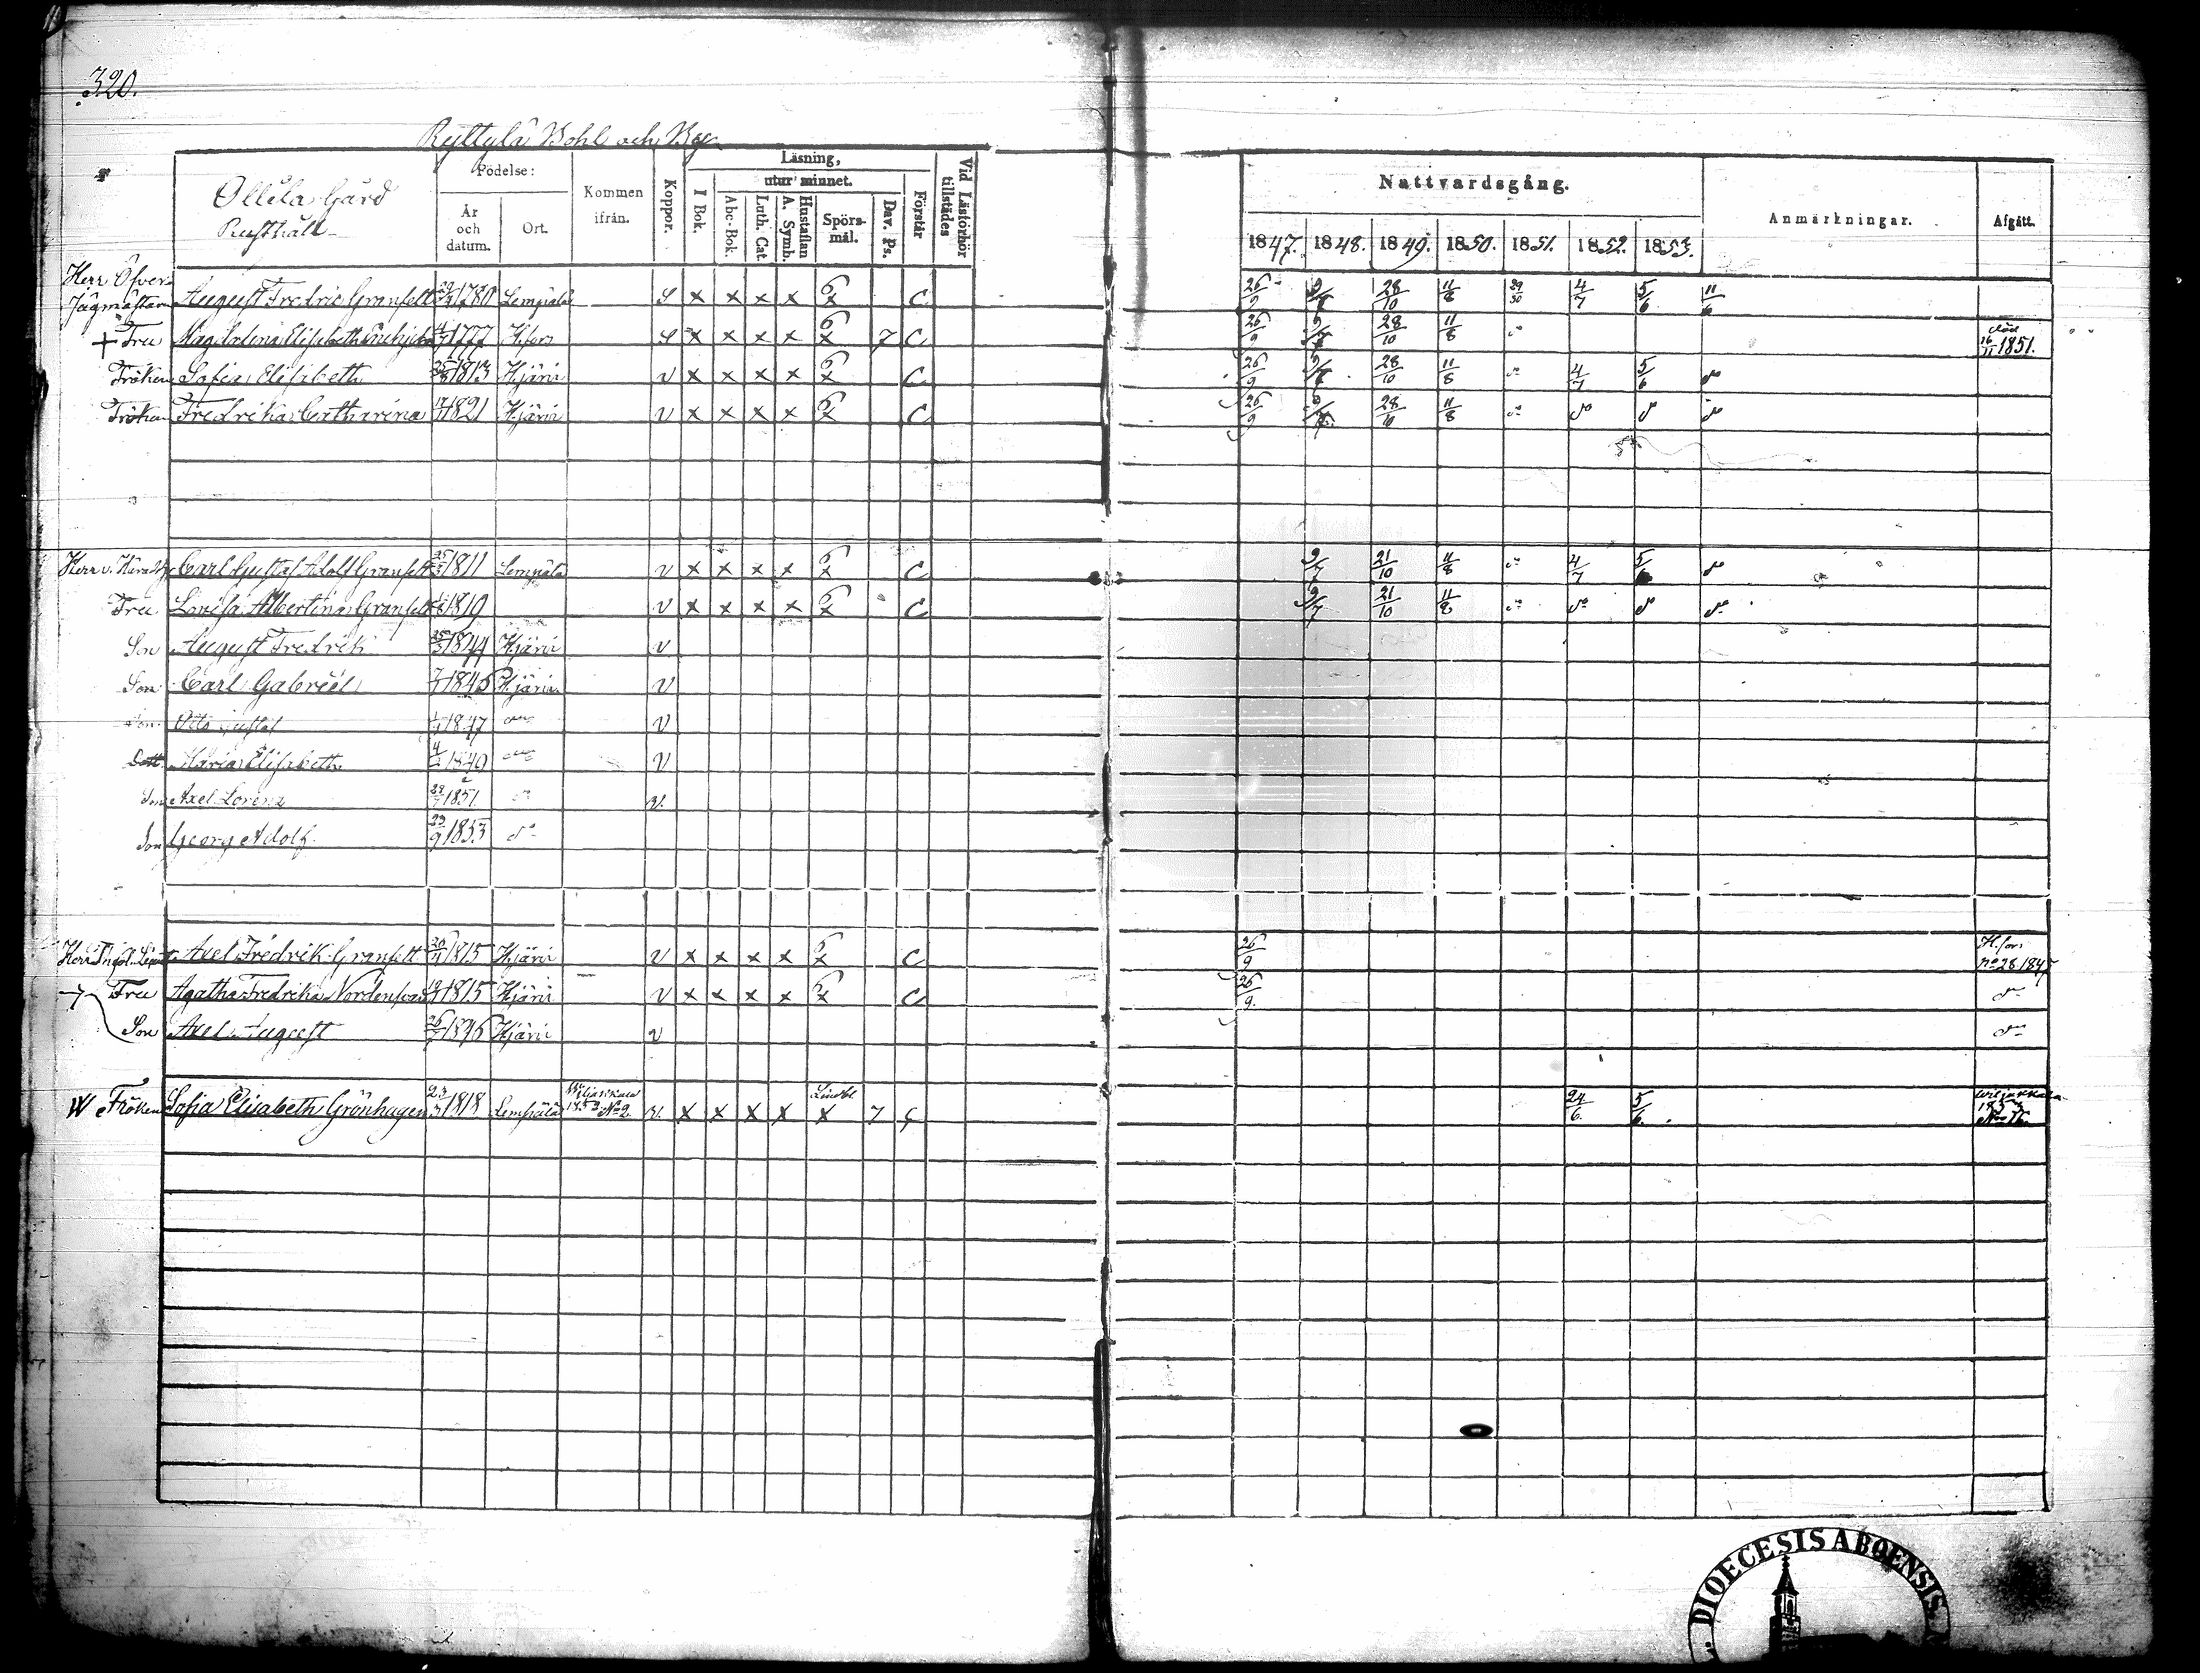 320.
Ryttylä Bohl och By
Ollila Gård
Rusthåll
Födelse:
År och datum.
Ort.
Kommen ifrån.
Koppor.
Läsning,
I Bok.
utur minnet.
Abc-Bok.
Luth. Cat.
Hustaflan A. Symb.
Spörs-mål.
Dav. Ps.
Förstår
Vid Läsförhör tillstädes
Nattvardsgång.
1847. 1848. 1849. 1850. 1851. 1852. 1853.
Anmärkningar.
Afgått.
Herr Öfver Jägmästare August Fredric Granfelt 1780 Lempälä S x x x x 6 x C 26/9 9/7 28/10 11/8 4/7 5/6 11/6
+ Fru Magdalena Elisabeth 1777 H.fors S x x x x 6 x 7 C 26/9 9/7 28/10 11/8 död 16/11 1851.
Fröken Sofia Elisabeth 1813 Hjärvi v x x x x 6 x C 26/9 9/7 28/10 11/8 do 4/7 5/6 do
Fröken Fredrika Catharina 1821 Hjärvi v x x x x 6 x C 26/9 9/7 28/10 11/8 do do do do
Herr v. Häradsh. Carl Gustaf Adolf Granfelt 1811 Lempälä v x x x x 6 x C 9/7 21/10 11/8 do 4/7 5/6 do
Fru Lovisa Albertina Granfelt 1819 v x x x x 6 x C 9/7 21/10 11/8 do do do do
Son August Fredrik 1844 Hjärvi v
Son Carl Gabriel 1846 Hjärvi v
Son Otto Gustaf 1847 do v
Dott. Maria Elisabeth 1849 do v
Son Axel Lorenz 1851 do v.
Son Georg Adolf. 23/9 1853 do
Herr Axel Fredrik Granfelt 1815 Hjärvi v x x x x 6 x C 26/9 H.fors no 28 1847
Fru Agatha Fredrika 1815 Hjärvi v x x x x 6 x C 26/9. do
Son Axel August 1846 Hjärvi v do
W Fröken Sofia Elisabeth Grönhagen 23/3 1818 Lempälä 1852 No 9. v. x x x x x 7 C 24/6. 5/6. 1853
DIOECESIS ABOENSIS